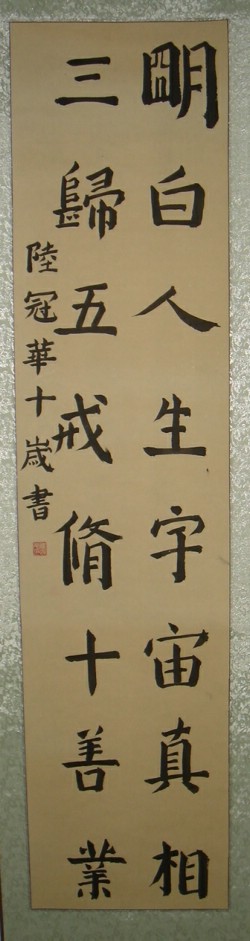 朙白人生宇宙真相
三歸五戒脩十善業
陸冠華十歲書